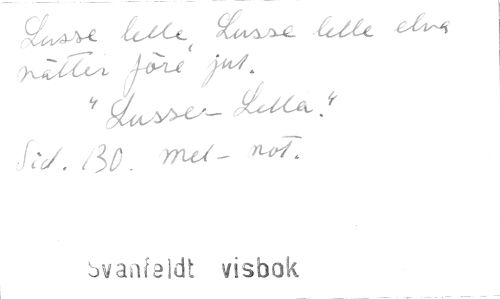 Lusse lelle, Lusse lelle elva
nätter före jul.
"Lusse-Lella."
Sid. 130. mel-not.
Svanfeldt visbok